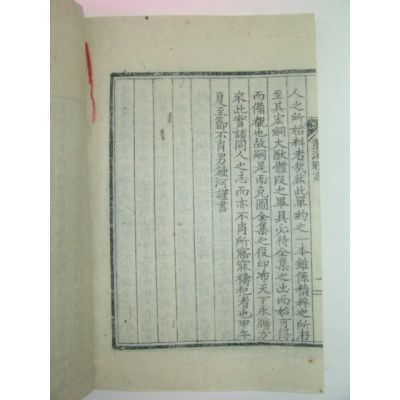 人之所始料者哉然此單約之一本雖係精粹之所存
至其宏綱大猷體段之畢具必待全集之出而始可得
而備觀也故嗣是而克圖全集之役印布天下永牖方
來此實諸同人之志而亦不肖所寤寐禱祀者也甲午
夏至節不肖男鍾河謹書